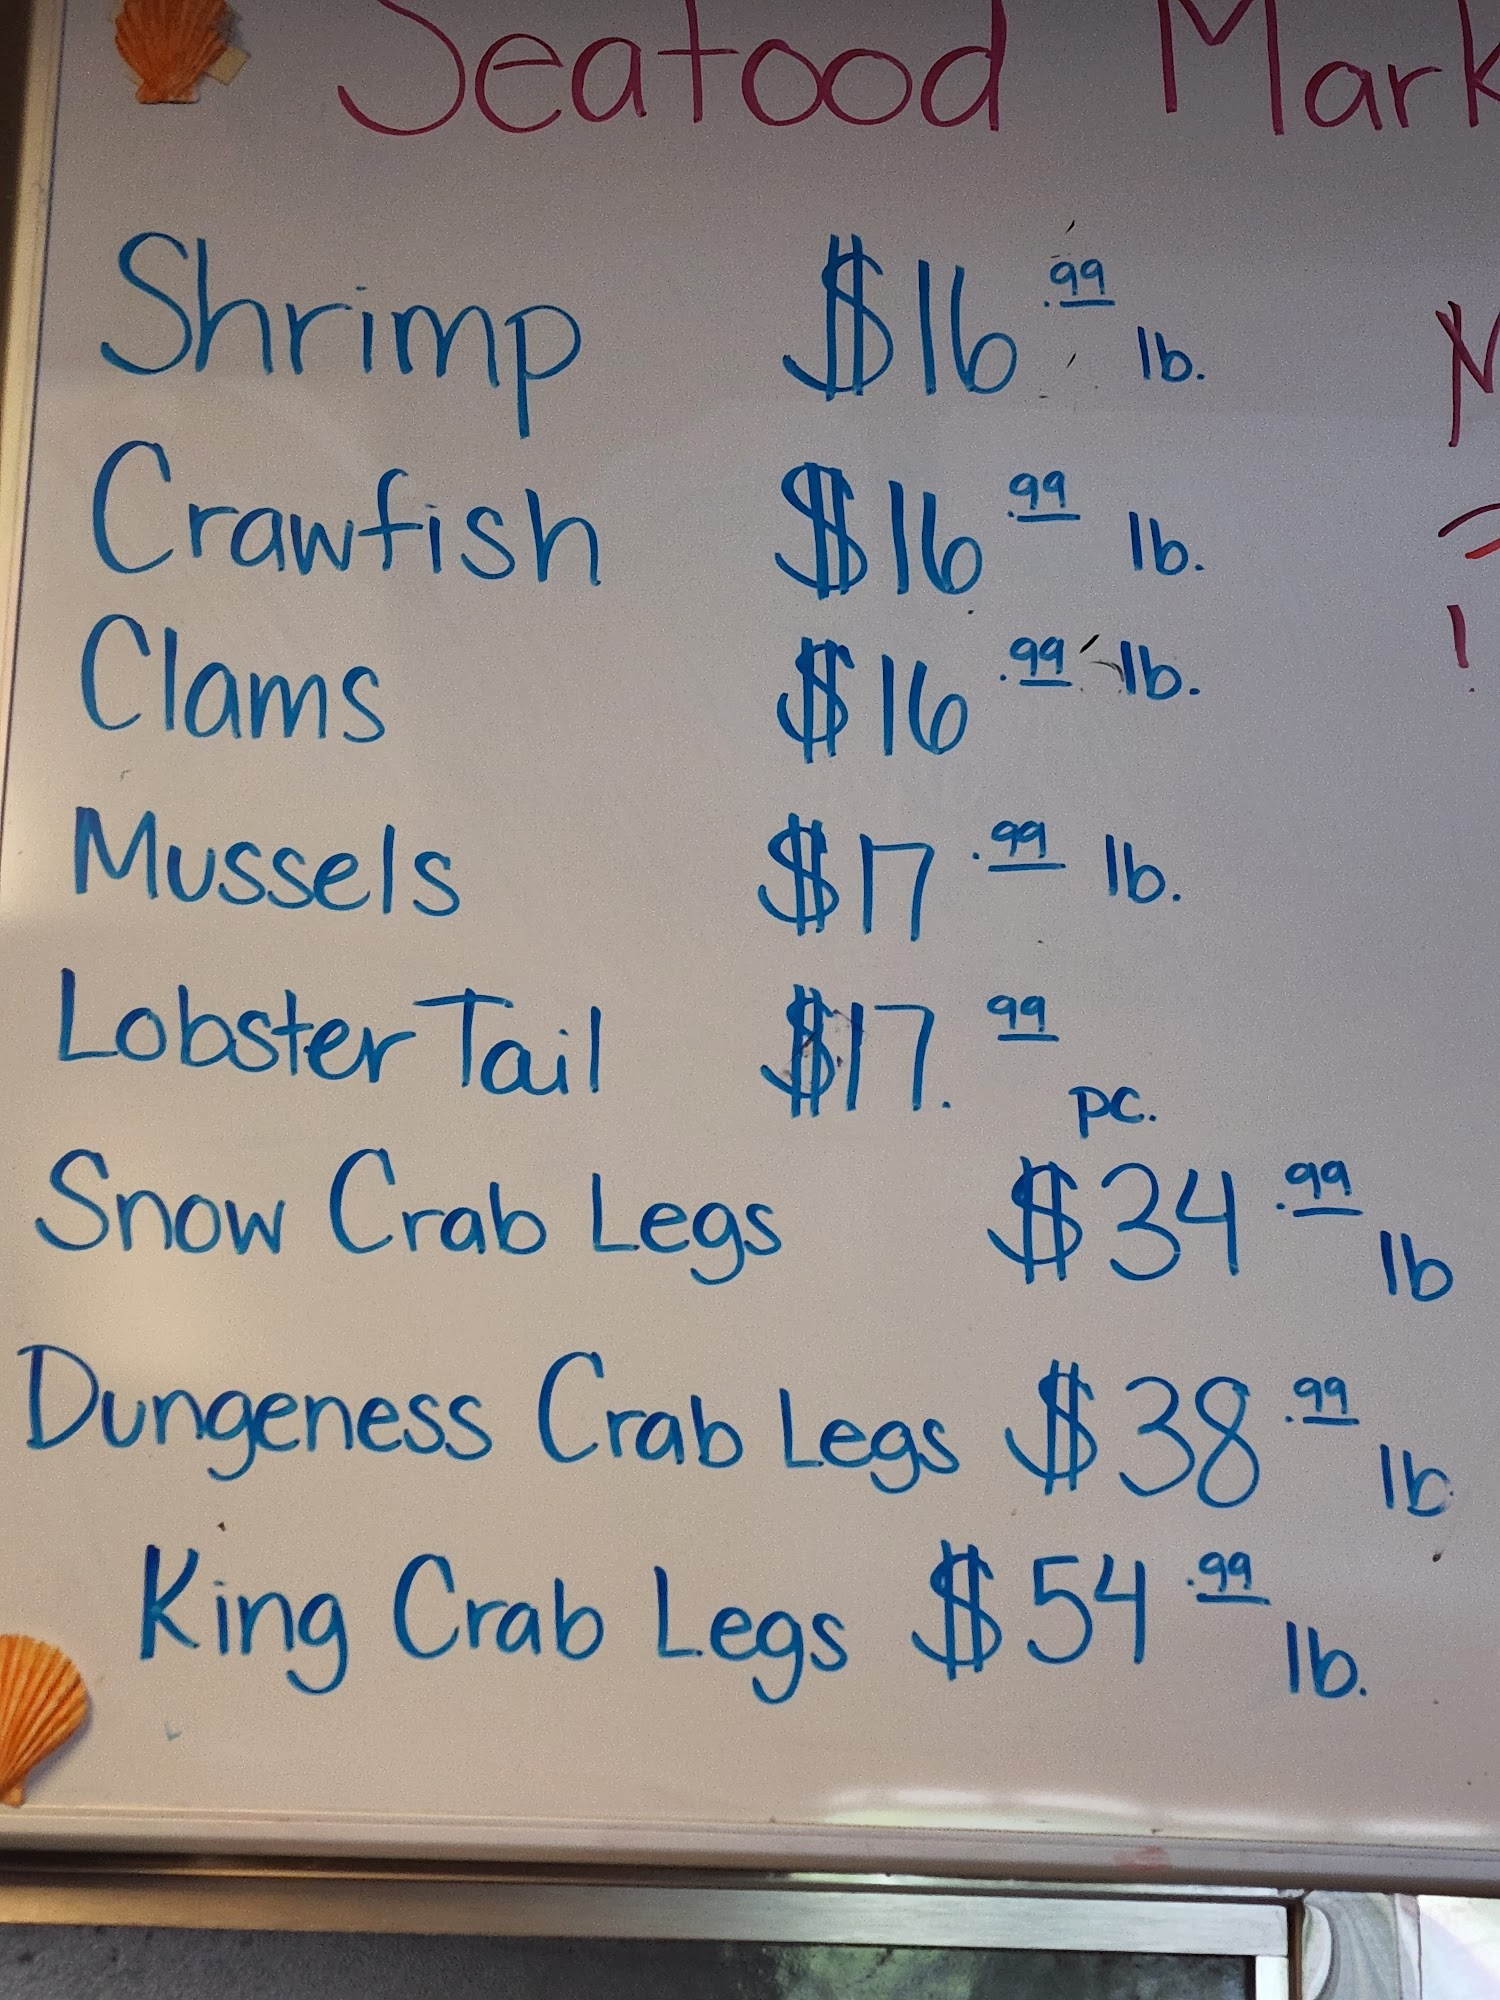 Seafood Mark
Shrimp $16.99 lb.
Crawfish $16.99 lb.
Clams $16.99 lb.
Mussels $17.99 lb.
Lobster Tail $17.99 pc.
Snow Crab Legs $34.99 lb
Dungeness Crab Legs $38.99 lb
King Crab Legs $54.99 lb.